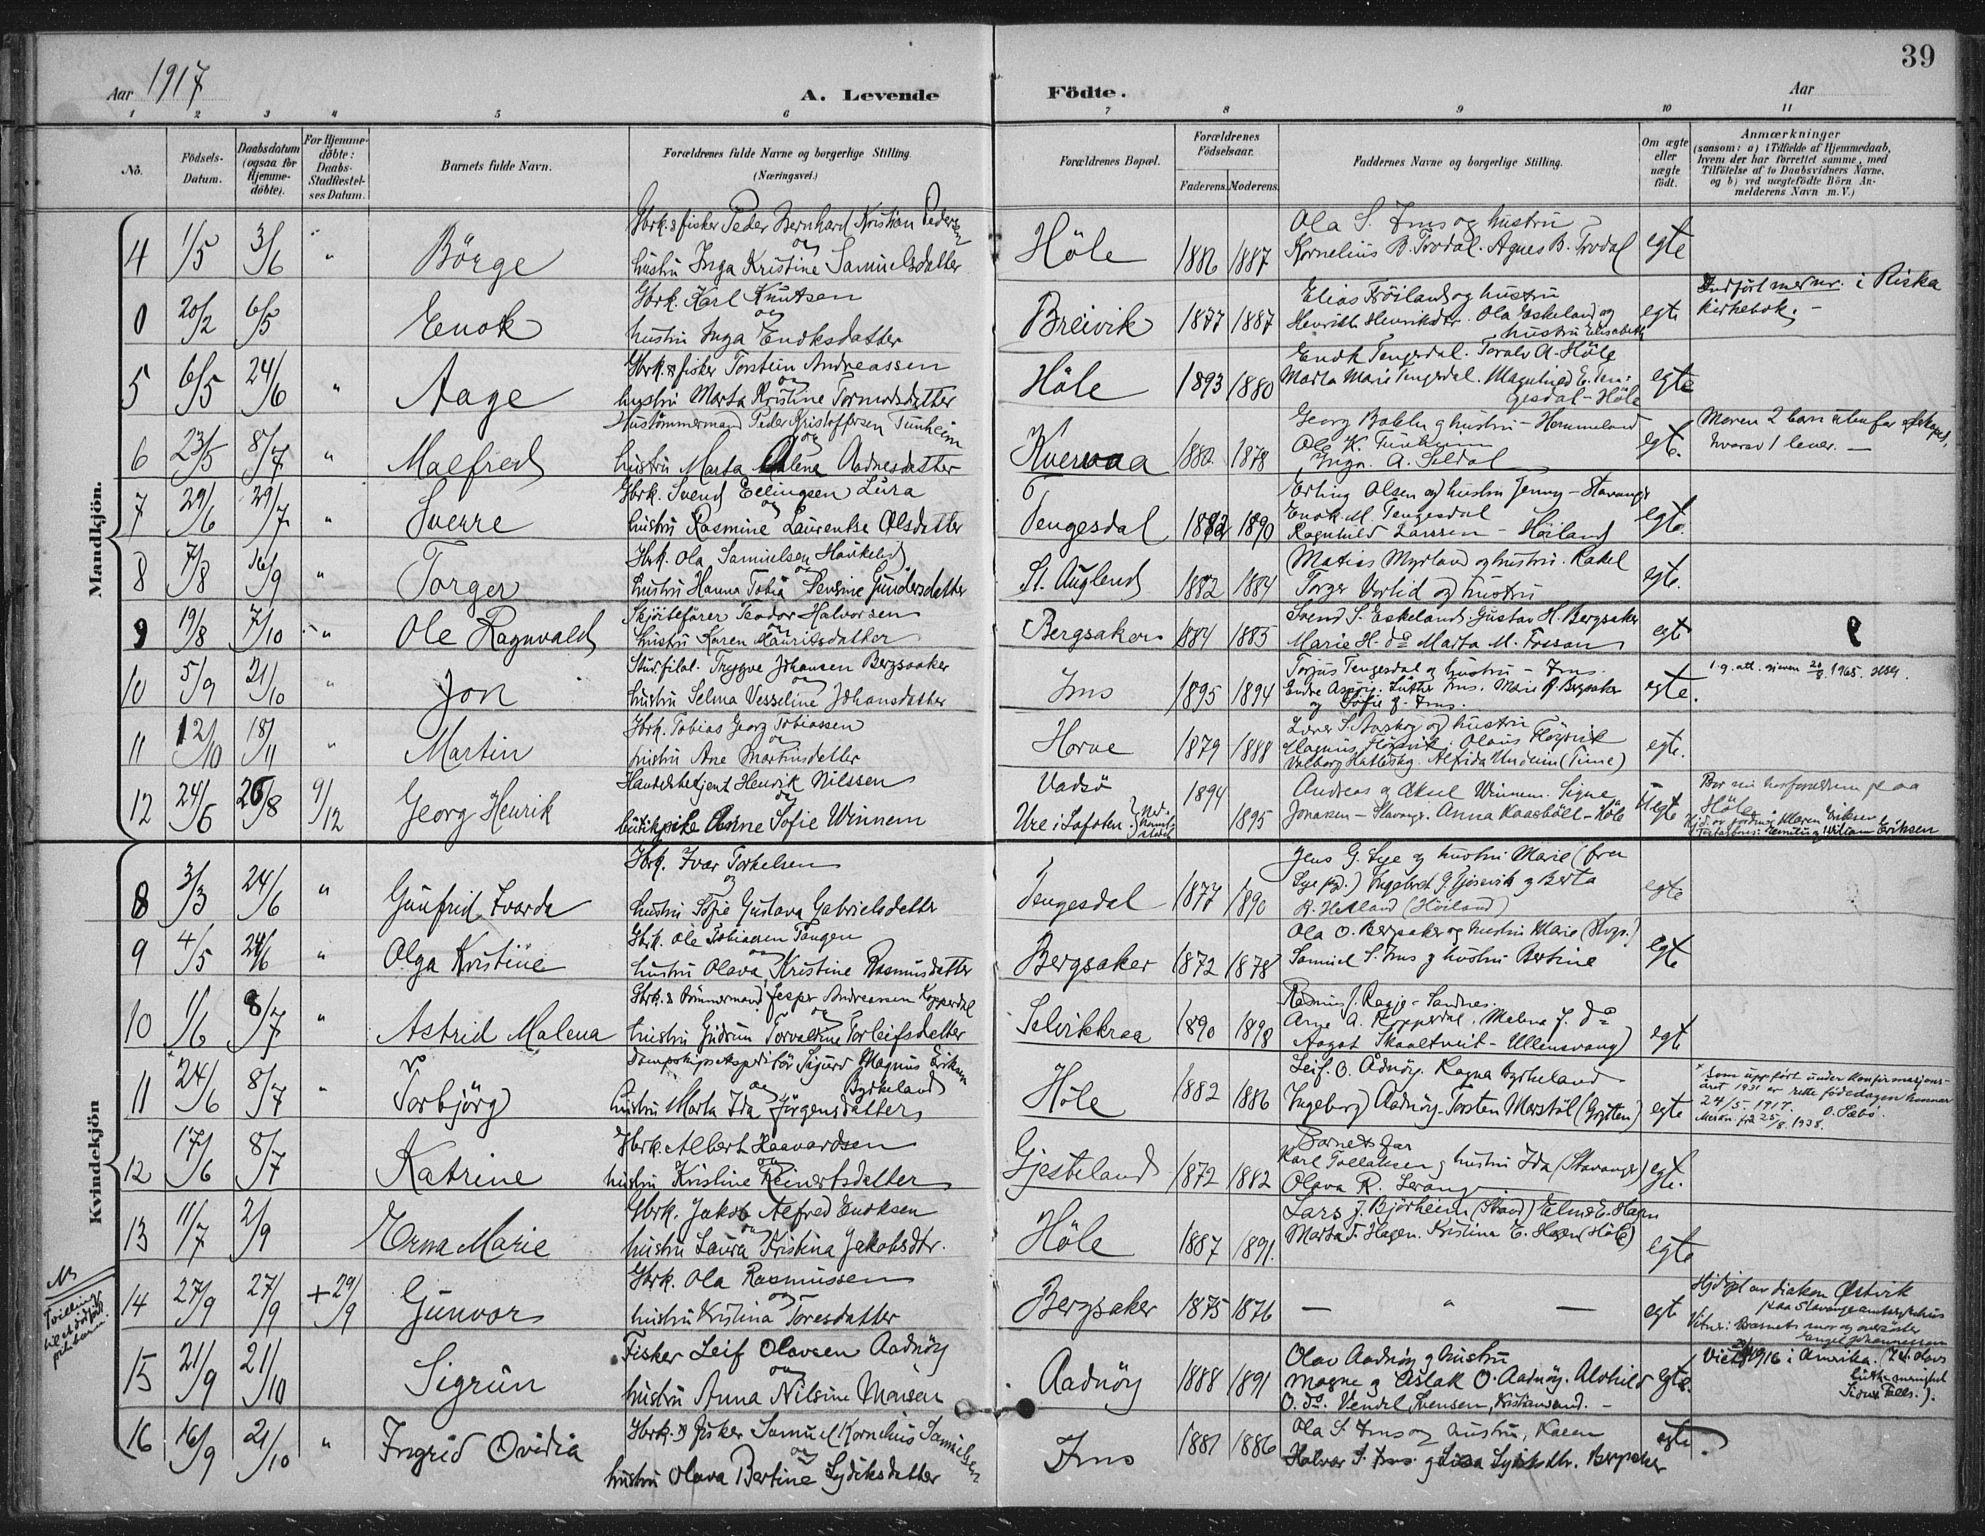 39
Aar 1917
A. Levende Födte.
Aar
1 2 3 4 5 6 7 8 9 10 11
No.
Födsels-Datum.
Daabsdatum (ogsaa for Hjemme-döbte).
For Hjemme-döbte: Daabs-Stadfæstel-ses Datum.
Barnets fulde Navn.
Forældrenes fulde Navne og borgerlige Stilling. (Næringsvei.)
Forældrenes Bopæl.
Forældrenes Födselsaar.
Faderens. Moderens.
Faddernes Navne og borgerlige Stilling.
Om ægte eller uægte födt.
Anmærkninger
(saasom: a) i Tilfælde af Hjemmedaab,
hvem der har forrettet samme, med
Tilföielse af to Daabsvidners Navne,
og b) ved uægtefödte Börn An-
melderens Navn m. V.)
Mandkjön.
4 1/5 3/6 " Börge
Gbrk. & fisker Peder Bernhard Kristian Pedersen
og
hustru Inga Kristine Samuelsdatter
Höle 1886 1887
Ola S. Ims og hustru
Kornelius B. Trodal. Agnes B. Trodal
egte
0 20/2 6/5 " Enok
Gbrk. Karl Knutsen
og
hustru Inga Enoksdatter
Breivik 1877 1887
Elias Fröiland og hustru
Henriette Henriksdtr. Ola Eskeland og
hustru Elisabeth
egte
Indfört mer nr. i Riska
kirkebok. -
5 6/5 24/6 " Aage
Gbrk. & fisker Torstein Andreassen
og
hustru Marta Kristine Tormodsdatter
Höle 1893 1880
Enok Tengesdal. Toralv A. Höle
Marta Marie Tengesdal. Magnhild E. Ten-
gesdal - Höle
egte
6 23/5 8/7 " Malfred
Hustömmermand Peder Kristoffersen Tunheim
og
hustru Marta Malene Aadnesdatter
Kvervaa 1880 1878
Georg Bakken og hustru - Hommeland
Ole K. Tunheim
Ingv. A. Seldal
egte.
Moren 2 barn utenfor egteskapet,
hvorav 1 lever. -
7 29/6 29/7 " Sverre
Gbrk. Svend Ellingsen Lura
og
hustru Rasmine Laurentse Olsdatter
Tengesdal 1882 1890
Erling Olsen og hustru Jenny - Stavanger
Enok M. Tengesdal
Ragnhild Larssen - Höiland
egte.
8 7/8 16/9 " Torger
Gbrk. Ola Samuelsen Haukelid
og
hustru Hanna Tobia Severine Gundersdatter
St. Auglend 1882 1884
Matias Myrland og hustru Rakel
Torger Vorlid og hustru
egte.
9 19/8 7/10 " Ole Ragnvald
Skjöitefører Teodor Halvorsen
og
hustru Karen Lauritsdatter
Bergsaker 1884 1885
Svend S. Eskeland. Gustav H. Bergsaker
Marie H. do Marta M. Fossan
egte
10 5/9 21/10 " Jon
Stud. filol. Tryggve Johansen Bergsaker
og
hustru Selma Vesseline Johansdatter
Ims 1895 1894
Torjus Tengesdal og hustru - Ims
Endre Asheim. Luther Ims. Marie J. Bergsaker
og Sofie J. Ims.
egte.
11 12/10 18/11 " Martin
Gbrk. Tobias Georg Tobiassen
og
hustru Ane Martinsdatter
Horve 1879 1888
Magnus Flörvik. Olaus Flörvik
Valborg Hatleskog. Alfida Undheim (Time)
egte.
12 24/6 26/8 9/12 Georg Henrik
Handelsbetjent Henrik Nilssen
og
butikpike Anne Sofie Winnem
Vadsö 1894
Ure i Lofoten 1895
Andreas og Aksel Winnem. Signe
Jonassen - Stavanger. Anna Kaasböll - Höle
Uegte
Kvindekjön
8 3/3 24/6 " Gunfrid Ivarda
Gbrk. Ivar Torkelsen
og
hustru Sofie Gustava Gabrielsdatter
Tengesdal 1877 1890
Jens G. Lye og hustru Marie (fra
Lye pgd.) Ingebret G. Gjesvik og Berta
R. Hetland (Höiland)
egte
9 4/5 24/6 " Olga Kristine
Gbrk. Ole Tobiassen Tangen
og
hustru Olava Kristine Rasmusdatter
Bergsaker 1872 1878
Ola O. Bergsaker og hustru Marie (Stvgr.)
Samuel S. Ims og hustru Bertine
egte
10 1/6 8/7 " Astrid Malena
Gbrk. & tömmermand Jesper Andreassen Kopperdal
og
hustru Gudrun Torvaldine Torleifsdatter
Selvikkraa 1890 1898
Rasmus J. Rægje - Sandnes.
Arne A. Kopperdal. Malena J. do
Aagot Skaaltveit - Ullensvang)
egte
11 24/6 8/7 " Torbjörg
Dampskipsekspeditör Sigurd Magnus Eriksen
og Byrkeland
hustru Marta Ida Jörgensdatter
Höle 1882 1886
Leif O. Ådnöy. Ragna Byrkeland
Ingeborg Aadnöy. Torsten Marstöl (Gryten)
egte
* Som uppfört under konfirmasjons-
året 1931 er rette födedagen hennar
24/5. 1917.
Merkn. frå 25/8. 1938. O. Sæbö.
12 17/6 8/7 Katrine
Gbrk. Albert Haavardsen
og
hustru Kristine Reinertsdatter
Gjesteland 1872 1882
Barnets far
Karl Tollaksen og hustru Ida (Stavanger)
Olava R. Lerang
egte.
13 11/7 2/9 Erna Marie
Gbrk. Jakob Alfred Enoksen
og
hustru Laura Kristina Jakobsdtr.
Höle 1887 1891.
Lars J. Björheim (Strand) Elmo E. Hagen
Marta T. Hagen. Kristina E. Hagen (Höle)
egte
Tvilling
til et dödfödt
pikebarn.
14 27/9 27/9 + 29/9 Gunvor
Gbrk. Ola Rasmussen
og
hustru Kristina Toresdatter
Bergsaker 1875 1876 - " - egte
Hjdöpt av diakon Østvik
paa Stavanger amtssykehus
Vitner: Barnets mor og oversöster
Engel Johannessen
15 21/9 21/10 Sigrun
Fisker Leif Olavsen Aadnöy
og
hustru Anna Nilsine Monsen
Aadnöy 1888 1891
Olav Aadnöy og hustru
Magne og Aslak O. Aadnöy. Alvhild
O. do. Vendel Svensen, Kristiansand. -
egte.
Viet 1916 i Amerika. (Zet. Olavs
luth. menighet
Sioux Falls.).
16 16/9 21/10 " Ingrid Ovidia
Gbrk. & fisker Samuel Kornelius Samuelsen
og
hustru Olava Bertine Lydiksdatter
Ims 1881 1886
Ola S. Ims og hustru, Karen
Halvor S. Ims og Lisa Lydiksdtr. Bergsaker
egte